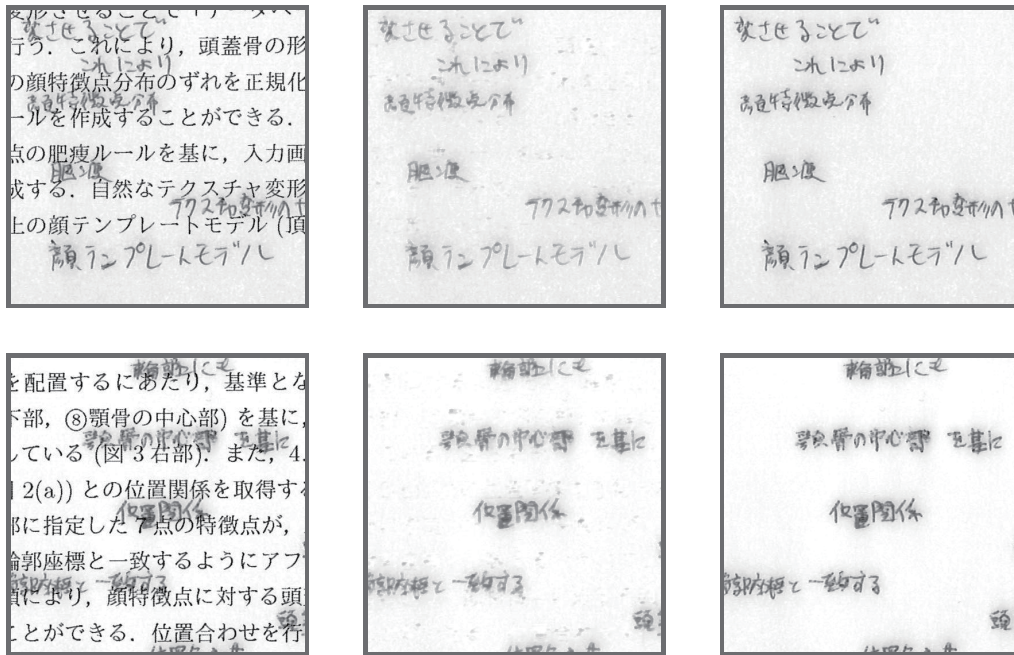 変形させることで
変させることで
行う．これにより，頭蓋骨の形
これにより
の顔特徴点分布のずれを正規化
顔特徴点分布
ールを作成することができる．
点の肥痩ルールを基に，入力画
肥痩
成する．自然なテクスチャ変形
テクスチャ変形の
上の顔テンプレートモデル (頂
顔テンプレートモデル
変させることで
これにより
顔特徴点分布
肥痩
テクスチャ変形の
顔テンプレートモデル
変させることで
これにより
顔特徴点分布
肥痩
テクスチャ変形の
顔テンプレートモデル
輪郭にも
を配置するにあたり，基準とな
下部，⑧顎骨の中心部) を基に，
顎骨の中心部 を基に
している (図 3 右部)．また，4.
2(a)) との位置関係を取得する
位置関係
部に指定した 7 点の特徴点が，
輪郭座標と一致するようにアフ
輪郭座標と一致する
により，顔特徴点に対する頭
頭
ことができる．位置合わせを行
輪郭にも
顎骨の中心部 を基に
位置関係
輪郭座標と一致する
頭
輪郭にも
顎骨の中心部 を基に
位置関係
輪郭座標と一致する
頭